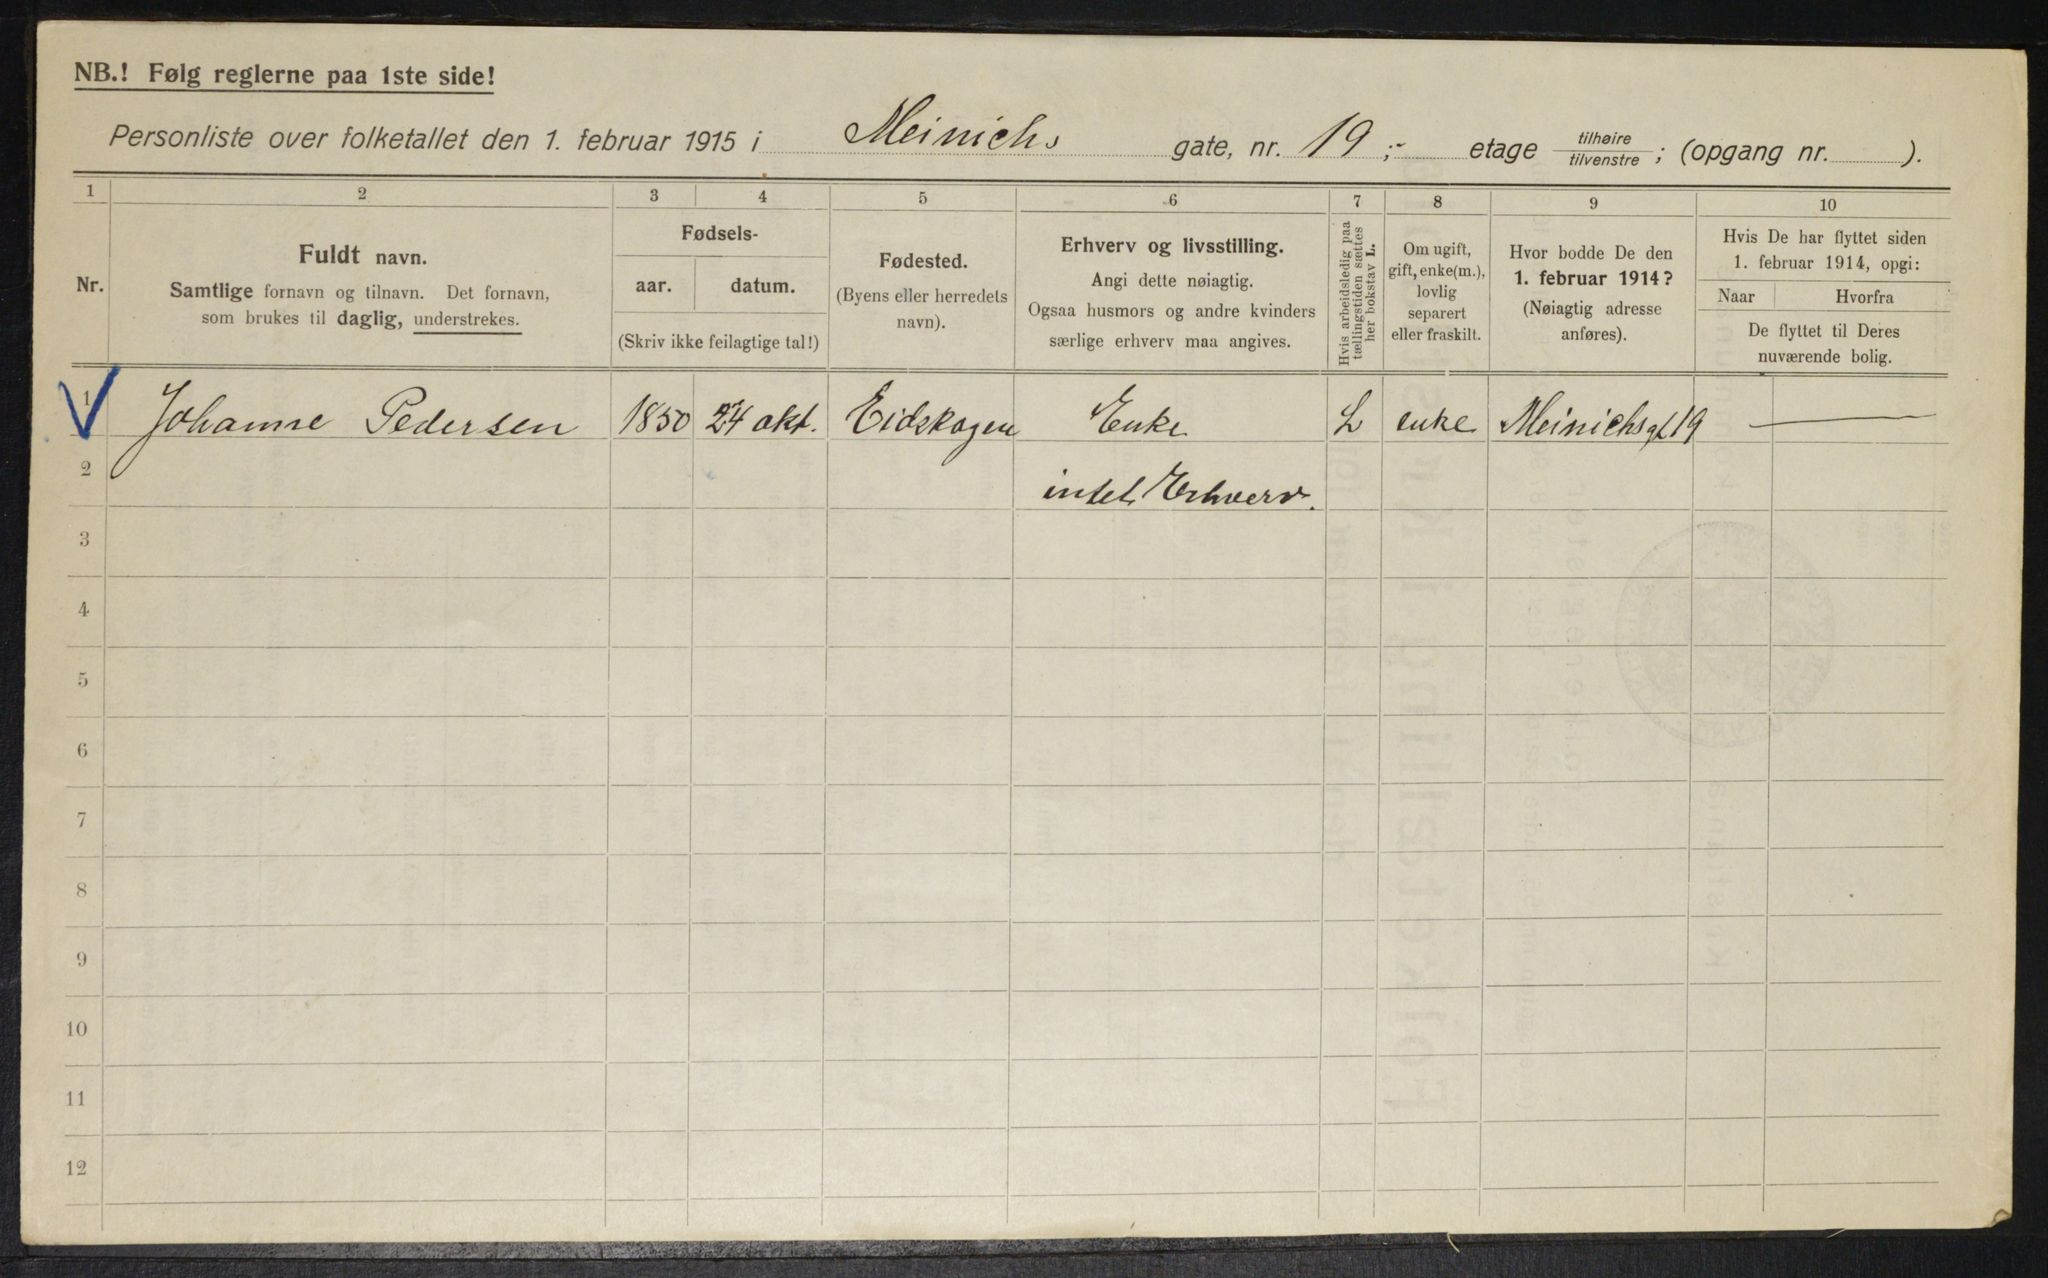 NB.! Følg reglerne paa 1ste side!
Personliste over folketallet den 1. februar 1915 i Meinichs gate, nr. 19 ;- etage tilhøire tilvenstre ; (opgang nr. ).
1 2 3 4 5 6 7 8 9 10
Nr.
Fuldt navn.
Samtlige fornavn og tilnavn. Det fornavn,
som brukes til daglig, understrekes.
Fødsels-
aar. datum.
(Skriv ikke feilagtige tal!)
Fødested.
(Byens eller herredets
navn).
Erhverv og livsstilling.
Angi dette nøiagtig.
Ogsaa husmors og andre kvinders
særlige erhverv maa angives.
Hvis arbeidsledig paa
tællingstiden sættes
her bokstav L.
Om ugift,
gift, enke(m.),
lovlig
separert
eller fraskilt.
Hvor bodde De den
1. februar 1914?
(Nøiagtig adresse
anføres).
Hvis De har flyttet siden
1. februar 1914, opgi:
Naar Hvorfra
De flyttet til Deres
nuværende bolig.
1 Johanne Pedersen 1850 24 okt. Eidskogen Enke L enke Meinichsgt 19 —
2 intet Erhverv.
3
4
5
6
7
8
9
10
11
12